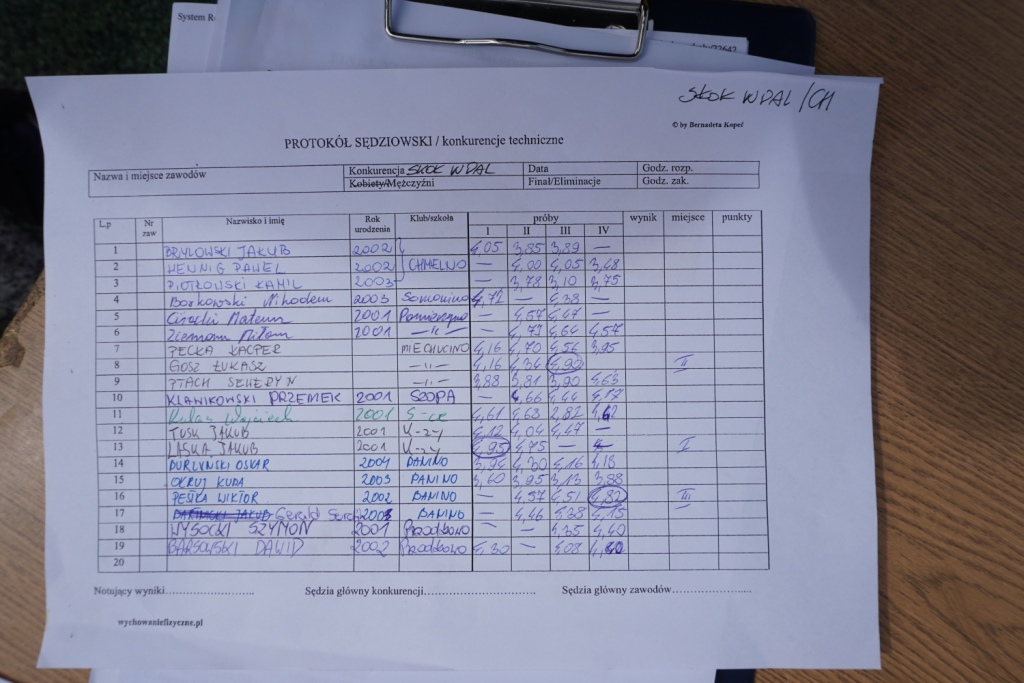 System R
SKOK W DAL /CH
© by Bernadeta Kopeć
PROTOKÓŁ SĘDZIOWSKI / konkurencje techniczne
Nazwa i miejsce zawodów Konkurencja SKOK W DAL Data Godz. rozp.
Kobiety/Mężczyźni Final/Eliminacje Godz. zak.
L.p Nr zaw Nazwisko i imię Rok urodzenia Klub/szkoła próby wynik miejsce punkty
I II III IV
1 BRYLOWSKI JAKUB 2002 4,05 3,85 3,89 —
2 HENNIG PAWEL 2002 CHMELNO — 4,00 4,05 3,48
3 PIOTROWSKI KAMIL 2003 — 3,78 3,10 3,75
4 Borkowski Nikodem 2003 Somonino 4,72 — 4,38 —
5 Cirocki Mateusz 2001 — 4,57 4,47 —
6 Ziemann Miłosz 2001 —"— — 4,77 4,64 4,57
7 PECKA KACPER MIECHUCINO 4,16 4,70 4,56 3,95
8 GOSZ ŁUKASZ —"— 4,16 4,34 4,90 II
9 PTACH SEWERYN —"— 3,88 3,81 3,90 4,63
10 KLAWIKOWSKI PRZEMEK 2001 SZOPA — 4,66 4,44 4,17
11 Kulas Wojciech 2001 S-ce 4,61 4,63 2,82
12 TUSK JAKUB 2001 K-zy 4,12 4,04 4,47 —
13 LASKA JAKUB 2001 K-zy 4,95 4,75 — I
14 DURZYNSKI OSKAR 2001 BANINO 3,94 4,30 4,16 4,18
15 OKRUJ KUBA 2003 BANINO 3,60 3,95 3,13 3,88
16 PEŁKA WIKTOR 2002 BANINO — 4,57 4,51 4,82 III
17 2003 BANINO — 4,46 4,15
18 WYSOCKI SZYMON 2001 Przodkowo — — 4,35 4,40
19 DAWID 2002 Przodkowo 4,30 — 4,08
20
Notujący wyniki Sędzia główny konkurencji Sędzia główny zawodów
wychowaniefizyczne.pl